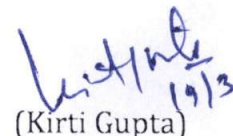 19/3
(Kirti Gupta)